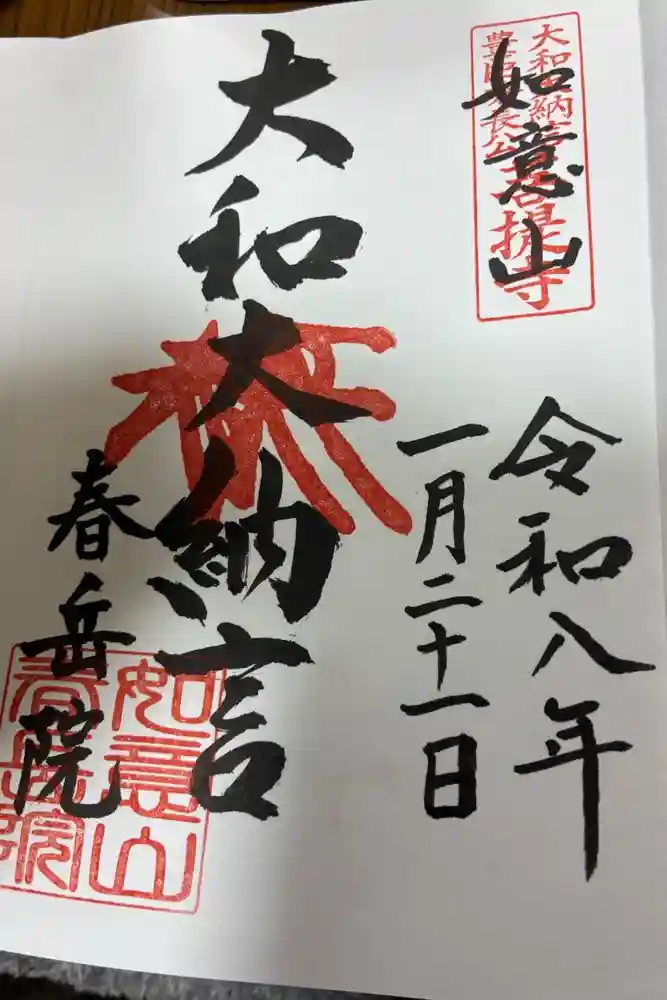 大和大納言
豊臣秀長公
菩提寺
如意山
令和八年
一月二十一日
大和大納言
春岳院
如意山
春岳院